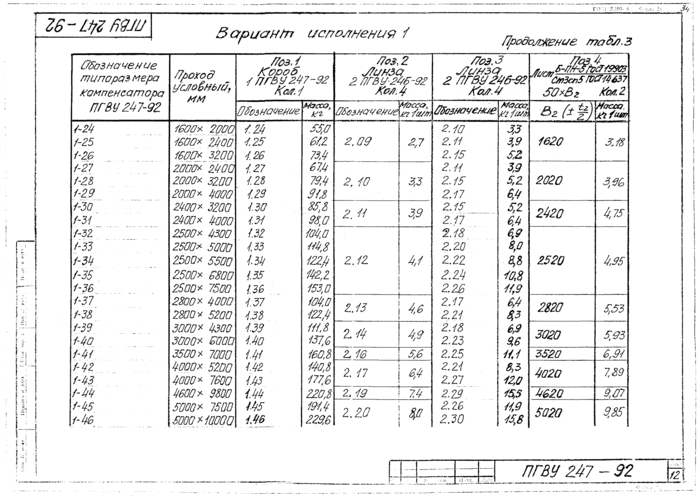 34
ПГВУ 247-92
Вариант исполнения 1
Продолжение табл.3
Обозначение типоразмера компенсатора ПГВУ 247-92 | Проход условный, мм | Поз.1 Короб 1 ПГВУ 247-92 Кол.1 | Поз.2 Линза 2 ПГВУ 246-92 Кол.4 | Поз.3 Линза 2 ПГВУ 246-92 Кол.4 | Поз.4 Лист Б-ПН-5 ГОСТ 19903 Ст3сп5 ГОСТ 14637 50×B₂ Кол 2
Обозначение | Масса, кг | Обозначение | Масса, кг 1 шт | Обозначение | Масса, кг 1 шт | B₂ (± t₂/2) | Масса, кг 1 шт
1-24 1600×2000 1.24 53,0 2.10 3,3
1-25 1600×2400 1.25 61,2 2.09 2,7 2.11 3,9 1620 3.18
1-26 1600×3200 1.26 73,4 2.15 5,2
1-27 2000×2400 1.27 67,4 2.11 3,9
1-28 2000×3200 1.28 79,4 2.10 3,3 2.15 5,2 2020 3,96
1-29 2000×4000 1.29 91,8 2.17 6,4
1-30 2400×3200 1.30 85,8 2.11 3,9 2.15 5,2 2420 4,75
1-31 2400×4000 1.31 98,0 2.17 6,4
1-32 2500×4300 1.32 104,0 2.18 6,9
1-33 2500×5000 1.33 114,8 2.20 8,0
1-34 2500×5500 1.34 122,4 2.12 4,1 2.22 8,8 2520 4,95
1-35 2500×6800 1.35 142,2 2.24 10,8
1-36 2500×7500 1.36 153,0 2.26 11,9
1-37 2800×4000 1.37 104,0 2.13 4,6 2.17 6,4 2820 5,53
1-38 2800×5200 1.38 122,4 2.21 8,3
1-39 3000×4300 1.39 111,8 2.14 4,9 2.18 6,9 3020 5,93
1-40 3000×6000 1.40 137,6 2.23 9,6
1-41 3500×7000 1.41 160,8 2.16 5,6 2.25 11,1 3520 6,91
1-42 4000×5200 1.42 140,8 2.17 6,4 2.21 8,3 4020 7,89
1-43 4000×7600 1.43 177,6 2.27 12,0
1-44 4600×9800 1.44 220,8 2.19 7.4 2.29 15,5 4620 9,07
1-45 5000×7500 1.45 191,4 2.20 8,0 2.26 11,9 5020 9,85
1-46 5000×10000 1.46 229,6 2.30 15,8
ПГВУ 247-92
12